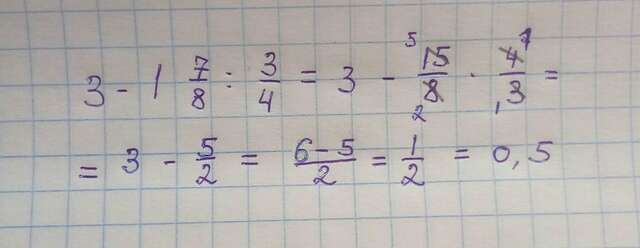 3 - 1 7/8 : 3/4 = 3 - 15/8 · 4/3 =
= 3 - 5/2 = (6-5)/2 = 1/2 = 0,5